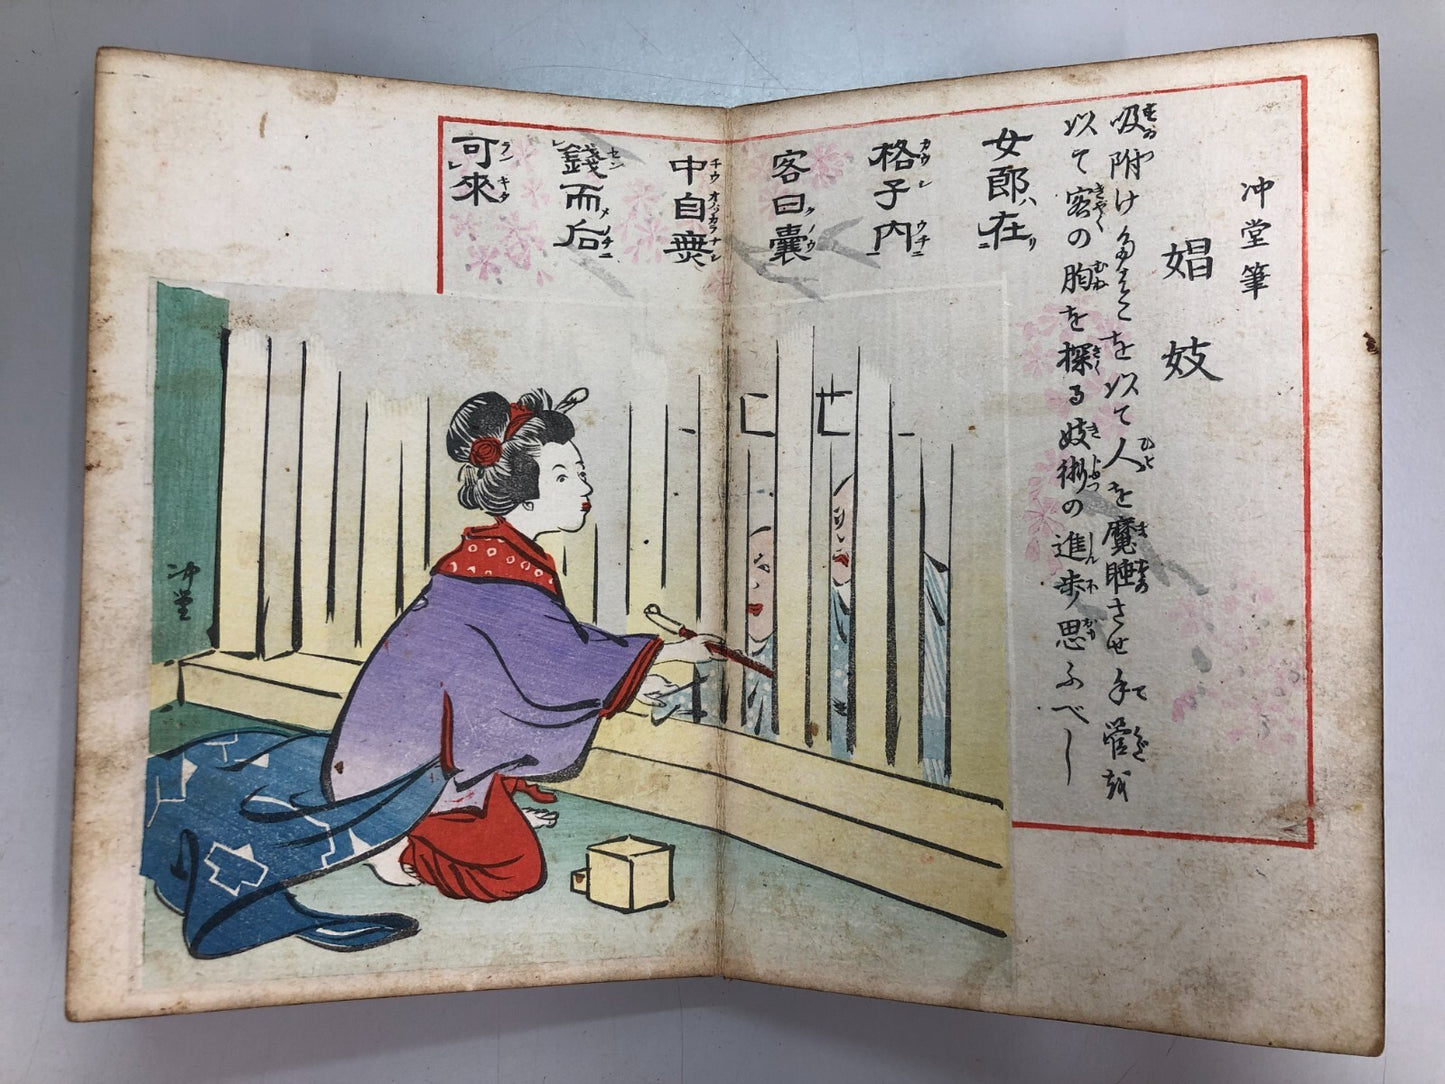 冲堂筆
娼妓
吸附けたばこを以て人を魔睡させ手管を
以て客の胸を探る妓術の進歩思ふべし
女郎在
格子内
客曰囊
中自無
錢而后
可來
冲堂